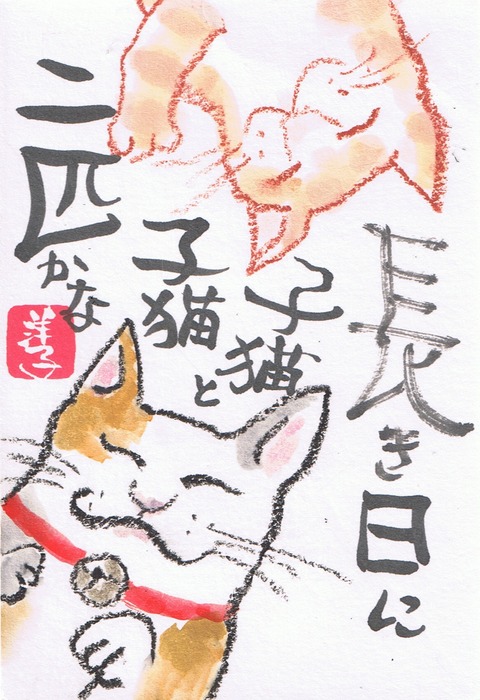 長き日に
子猫と
子猫
二匹かな
洋子